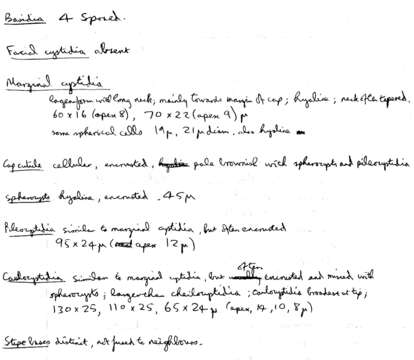 Basidia 4 Spored.
Facial cystidia absent
Marginal cystidia
lageniform with long neck; mainly towards margin of cap; hyaline; neck often tapered.
60 x 16 (apex 8), 70 x 22 (apex 9) μ
some spherical cells 19μ, 21μ diam, also hyaline
Cap cuticle cellular, encrusted, pale brownish with spherocysts and pileocystidia
spherocysts hyaline, encrusted -45μ
Pileocystidia similar to marginal cystidia, but often encrusted
95 x 24μ (apex 12μ)
Caulocystidia similar to marginal cystidia, but often encrusted and mixed with
spherocysts; larger than cheilocystidia; caulocystidia broadest at tip;
130 x 25, 110 x 25, 65 x 24μ (apex, 14, 10, 8μ)
Stipe bases distinct, not fused to neighbours.